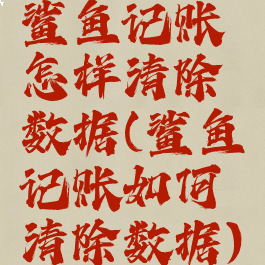 鲨鱼记账
怎样清除
数据(鲨鱼
记账如何
清除数据)